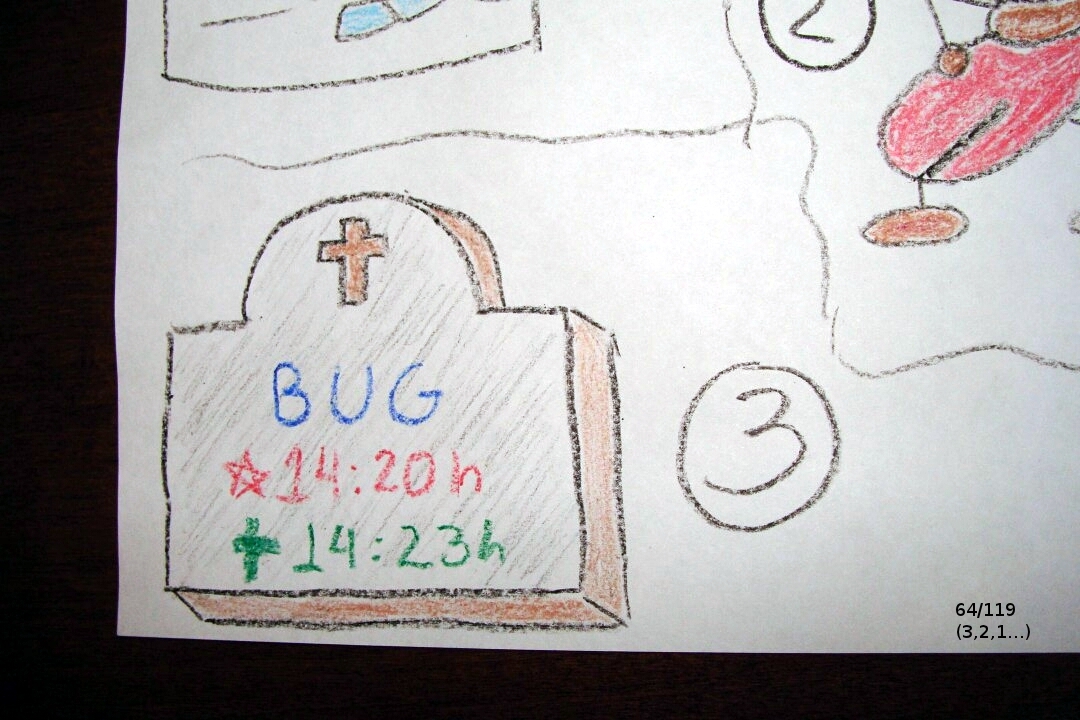 2
BUG
☆14:20h
✝14:23h
3
64/119
(3,2,1...)